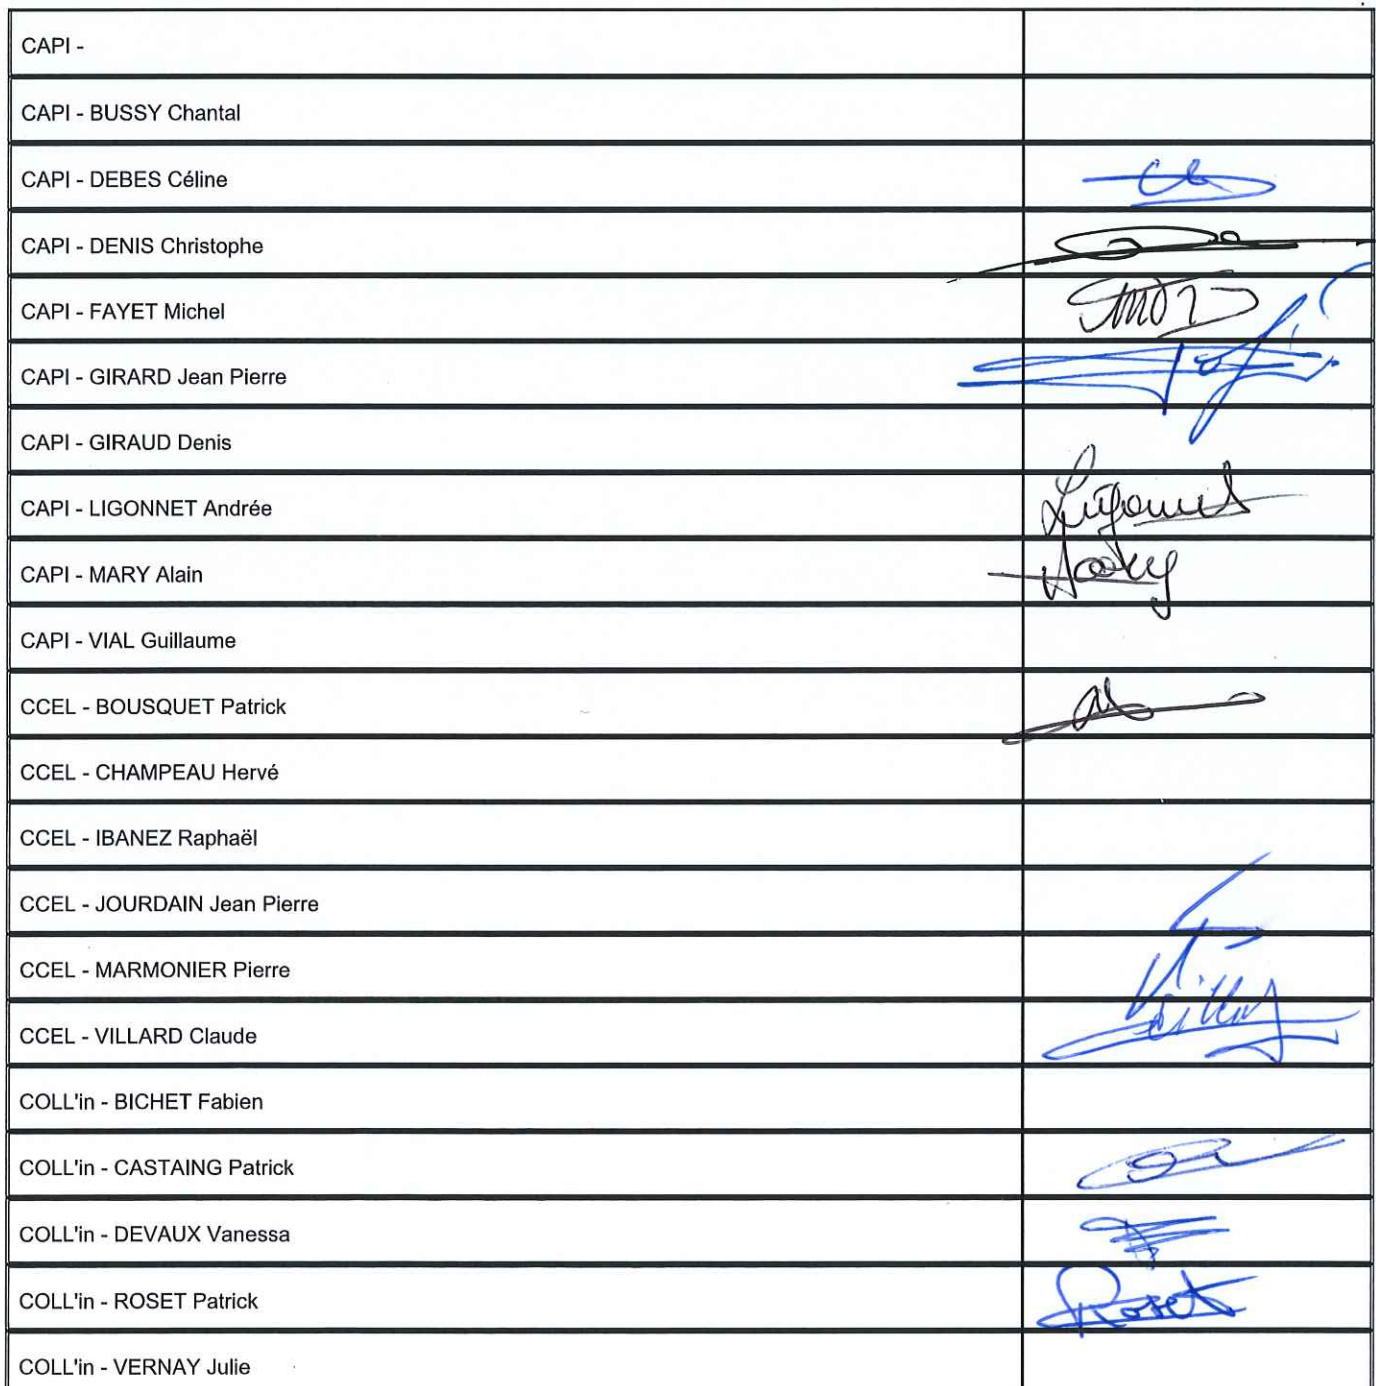 CAPI -
CAPI - BUSSY Chantal
CAPI - DEBES Céline
CAPI - DENIS Christophe
CAPI - FAYET Michel
CAPI - GIRARD Jean Pierre
CAPI - GIRAUD Denis
CAPI - LIGONNET Andrée
Ligonnet
CAPI - MARY Alain
CAPI - VIAL Guillaume
CCEL - BOUSQUET Patrick
CCEL - CHAMPEAU Hervé
CCEL - IBANEZ Raphaël
CCEL - JOURDAIN Jean Pierre
CCEL - MARMONIER Pierre
CCEL - VILLARD Claude
COLL'in - BICHET Fabien
COLL'in - CASTAING Patrick
COLL'in - DEVAUX Vanessa
COLL'in - ROSET Patrick
Roset
COLL'in - VERNAY Julie